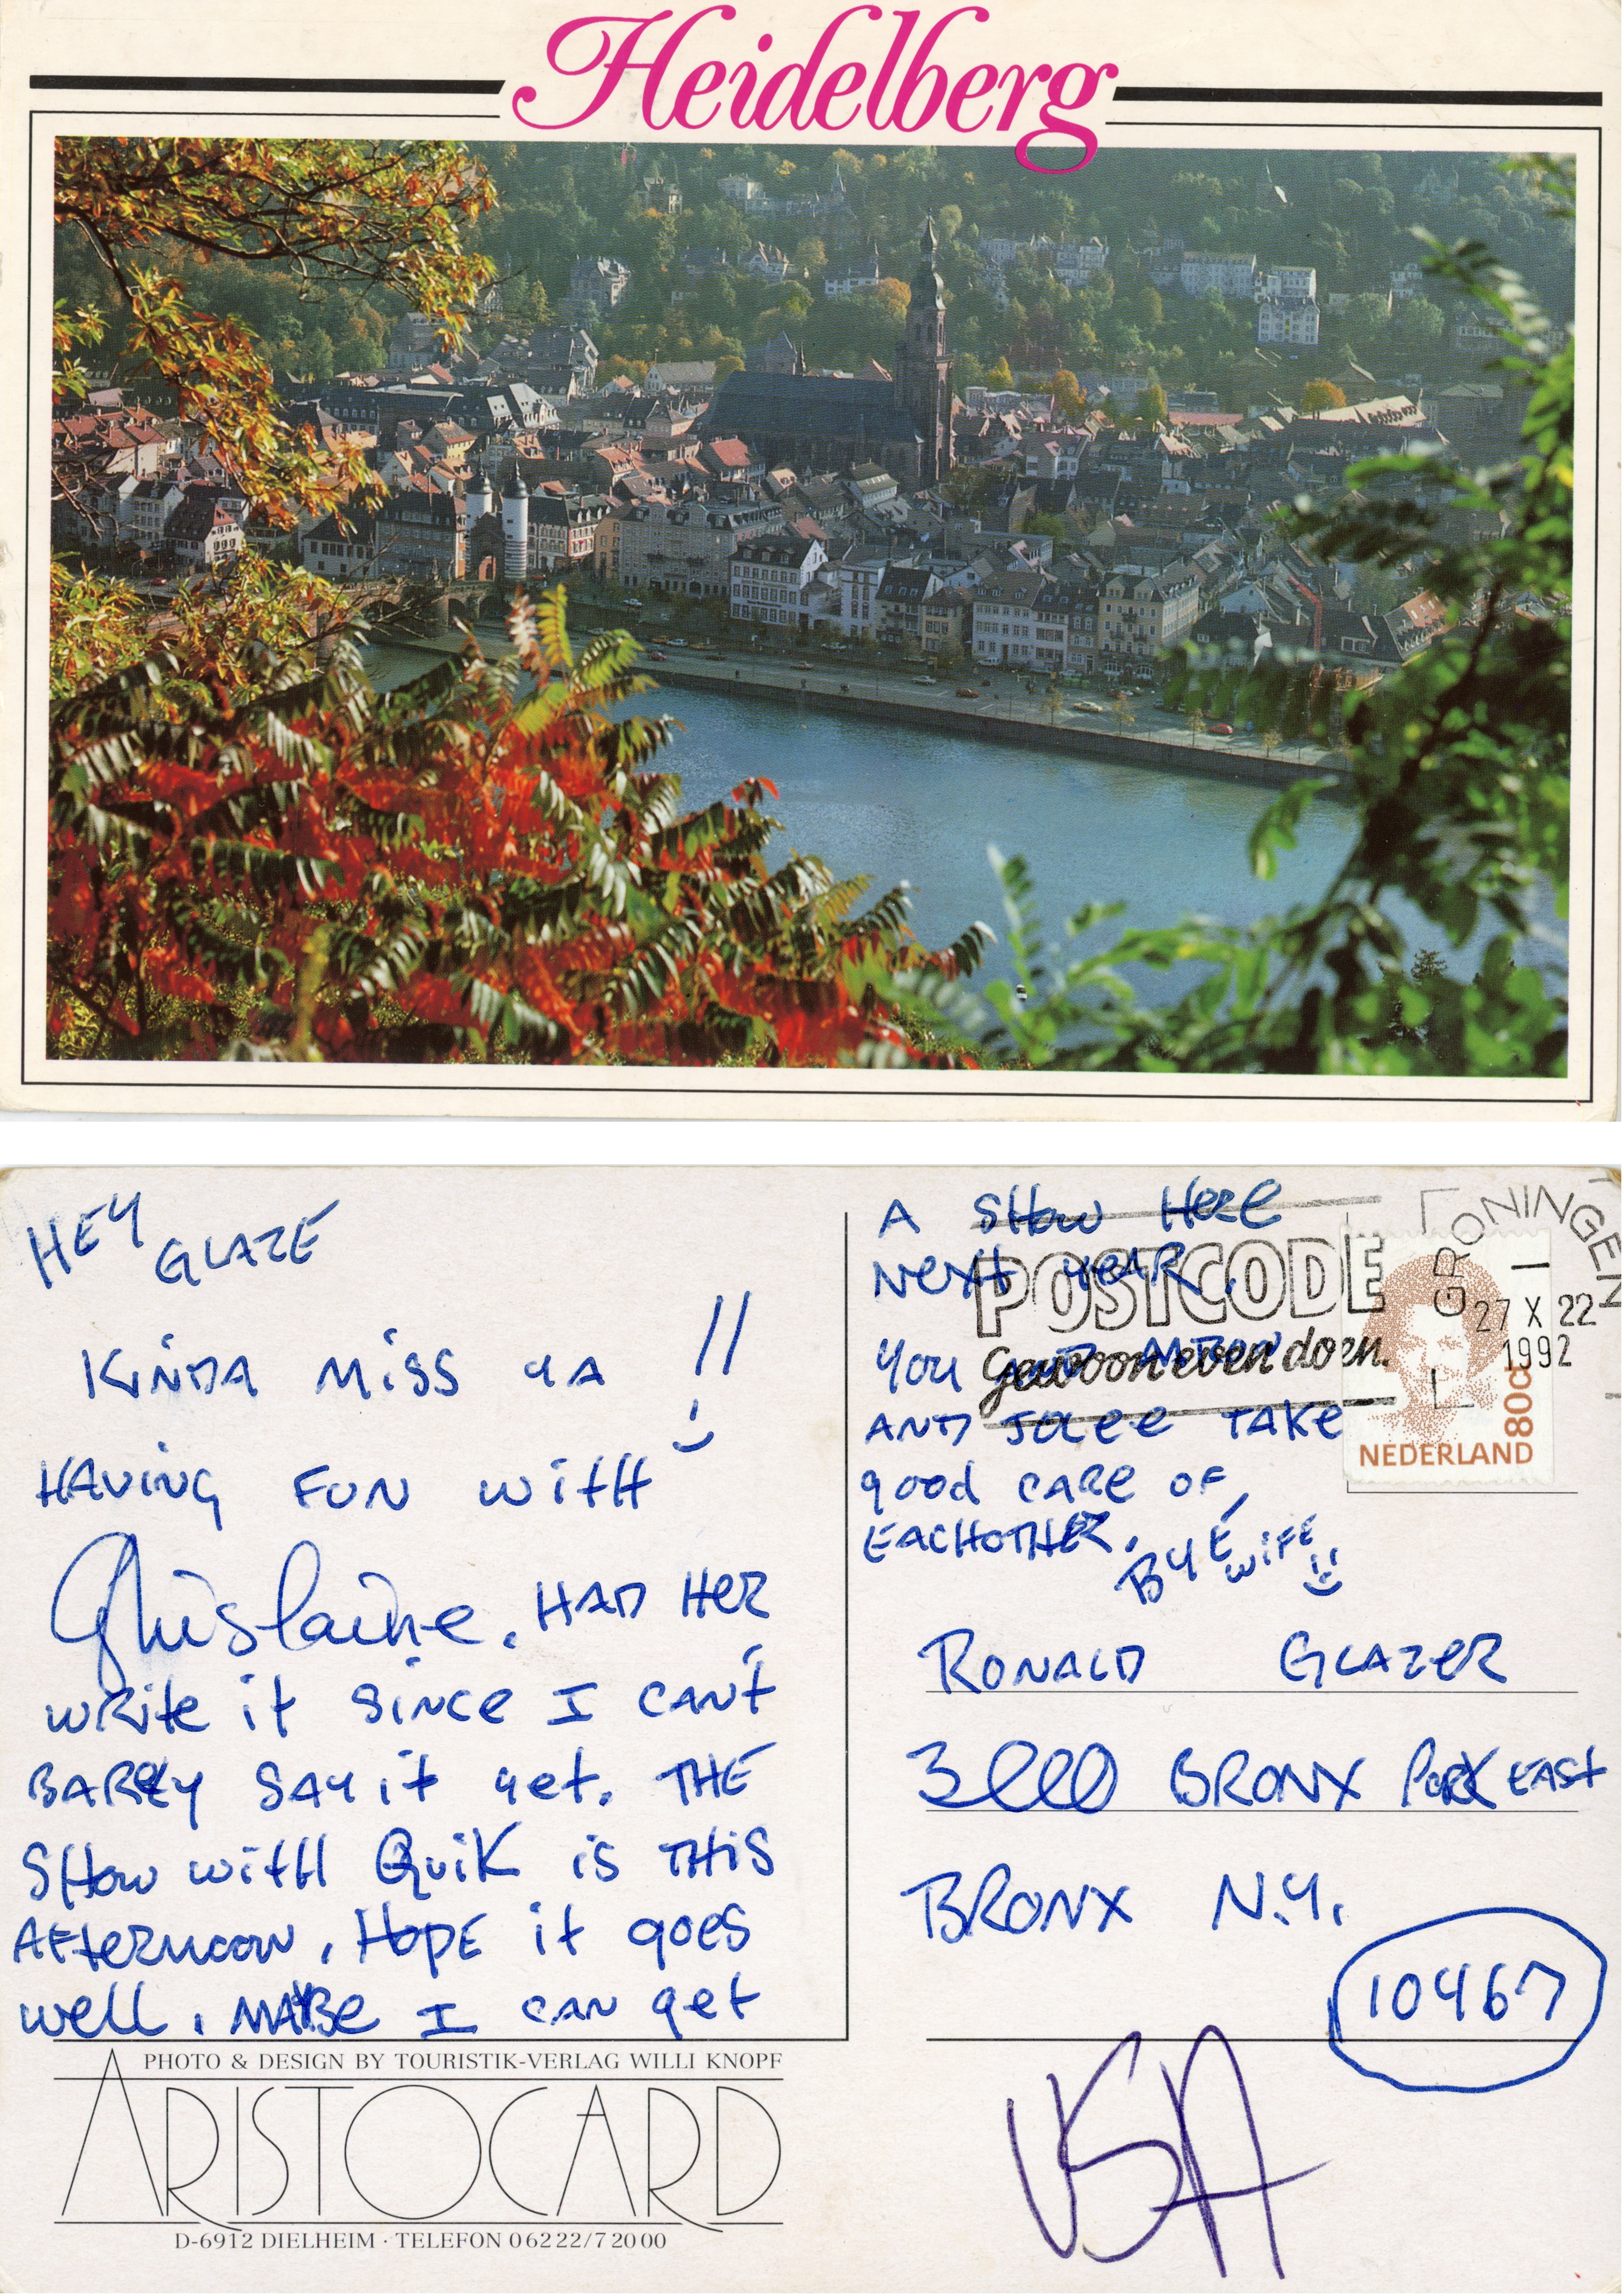 Heidelberg
HEY
GLAZE
KINDA MISS YA !!
HAVING FUN WITH
Ghislaine. HAD HER
WRITE IT SINCE I CAN'T
BARELY SAY IT YET. THE
SHOW WITH QUIK IS THIS
AFTERNOON. HOPE IT GOES
WELL. MAYBE I CAN GET
PHOTO & DESIGN BY TOURISTIK-VERLAG WILLI KNOPF
ARISTOCARD
D-6912 DIELHEIM · TELEFON 06222/72000
A SHOW HERE
NEXT YEAR.
YOU AND
AND TAKE
GOOD CARE OF
EACHOTHER.
BYE
WIFE
POSTCODE
Gewoon even doen.
GRONINGEN
27 X 22
1992
80c
NEDERLAND
RONALD GLAZER
3000 BRONX PARK EAST
BRONX N.Y.
10467
USA